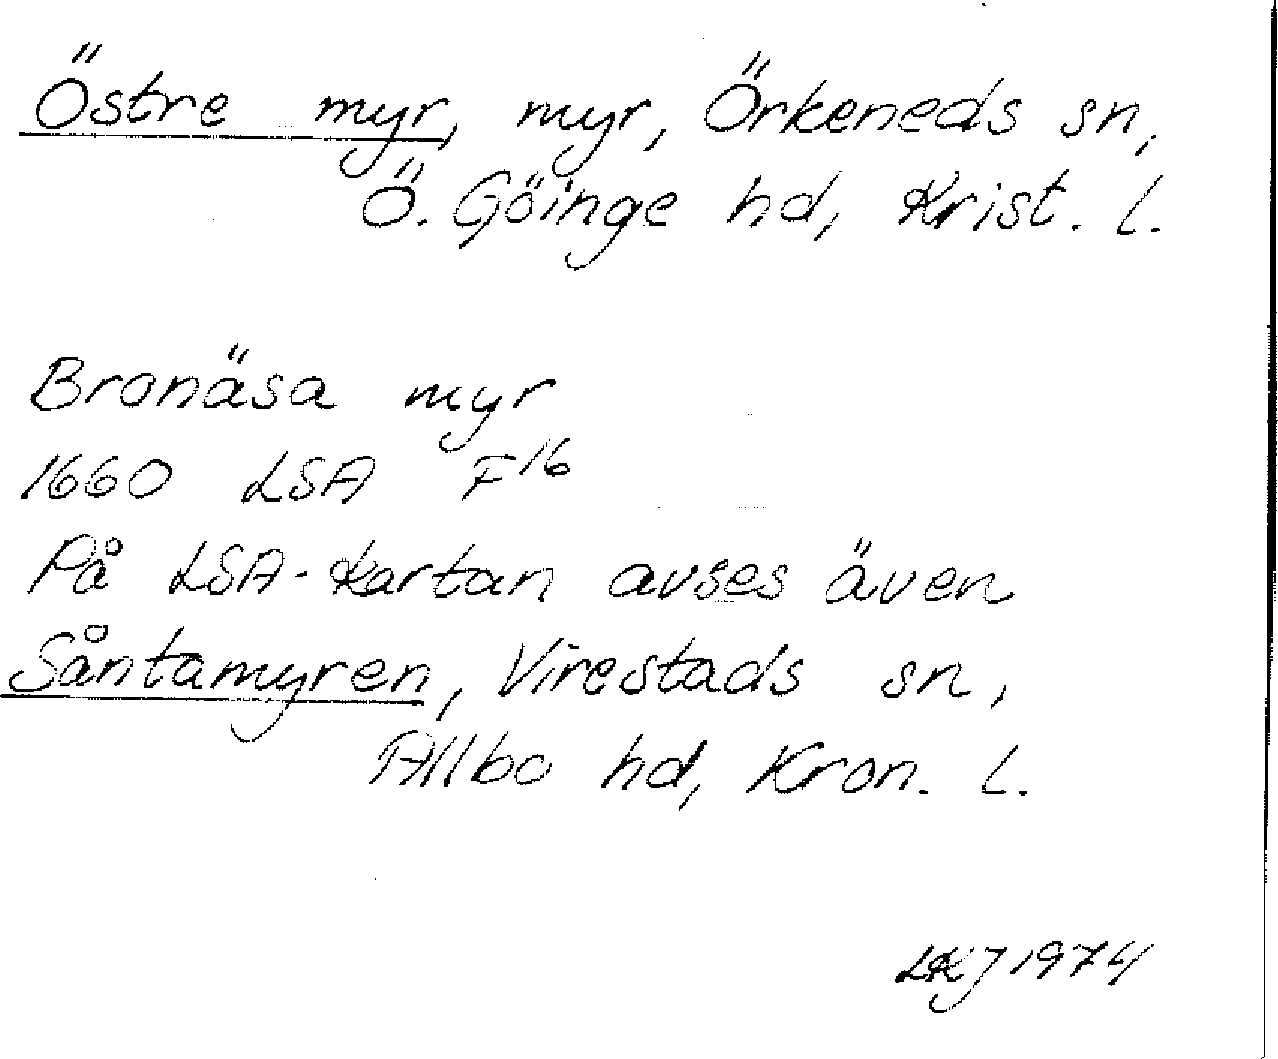 Östre myr, myr, Örkeneds sn,
Ö. Göinge hd, Krist. l.
Bronäsa myr
1660 LSA F16
På LSA-kartan avses även
Såntamyren, Virestads sn,
Allbo hd, Kron. l.
LKJ 1974